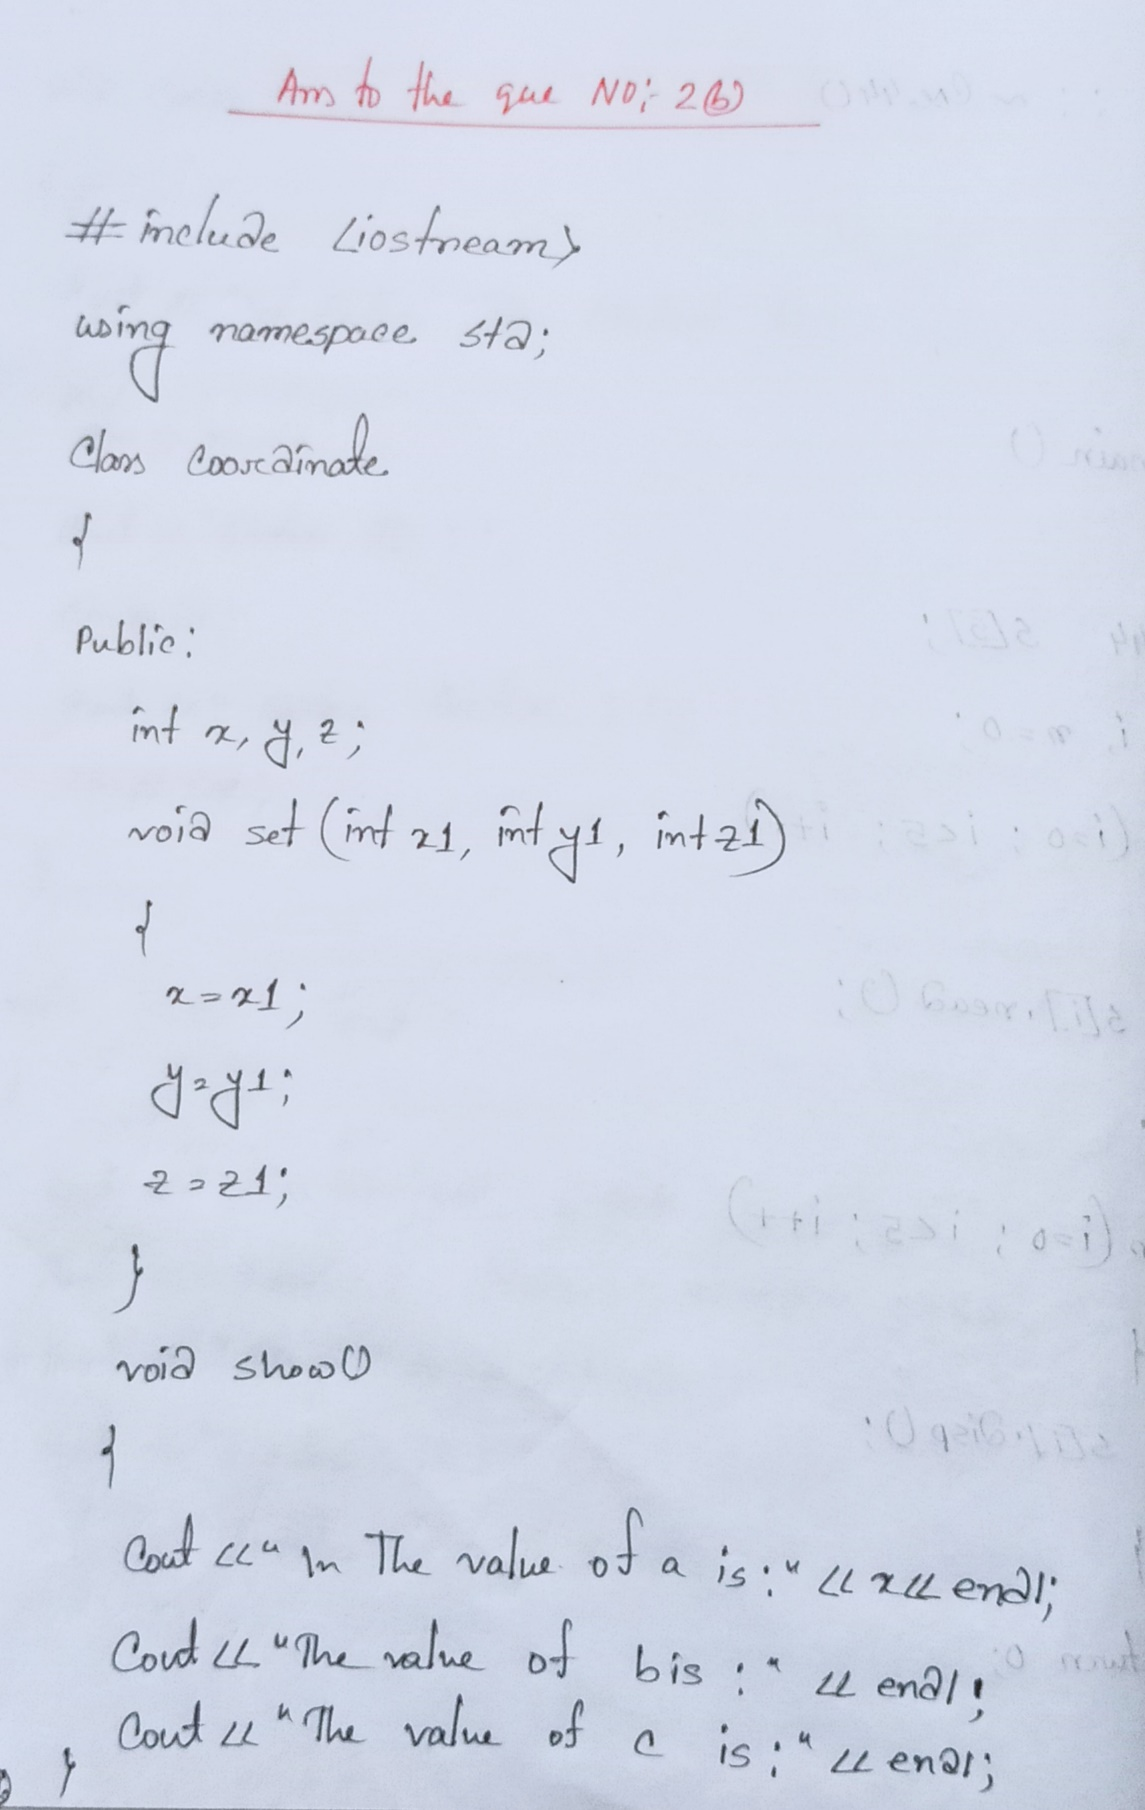 Ans to the que NO:- 2(b)
#include <iostream>
using namespace std;
Class Coordinate
{
Public:
int x, y, z;
void set (int x1, int y1, int z1)
{
x=x1;
y=y1;
z=z1;
}
void show()
{
Cout <<"\n The value of a is:" << x<< endl;
Cout <<"The value of b is :" << endl;
Cout <<"The value of c is:" << endl;
}